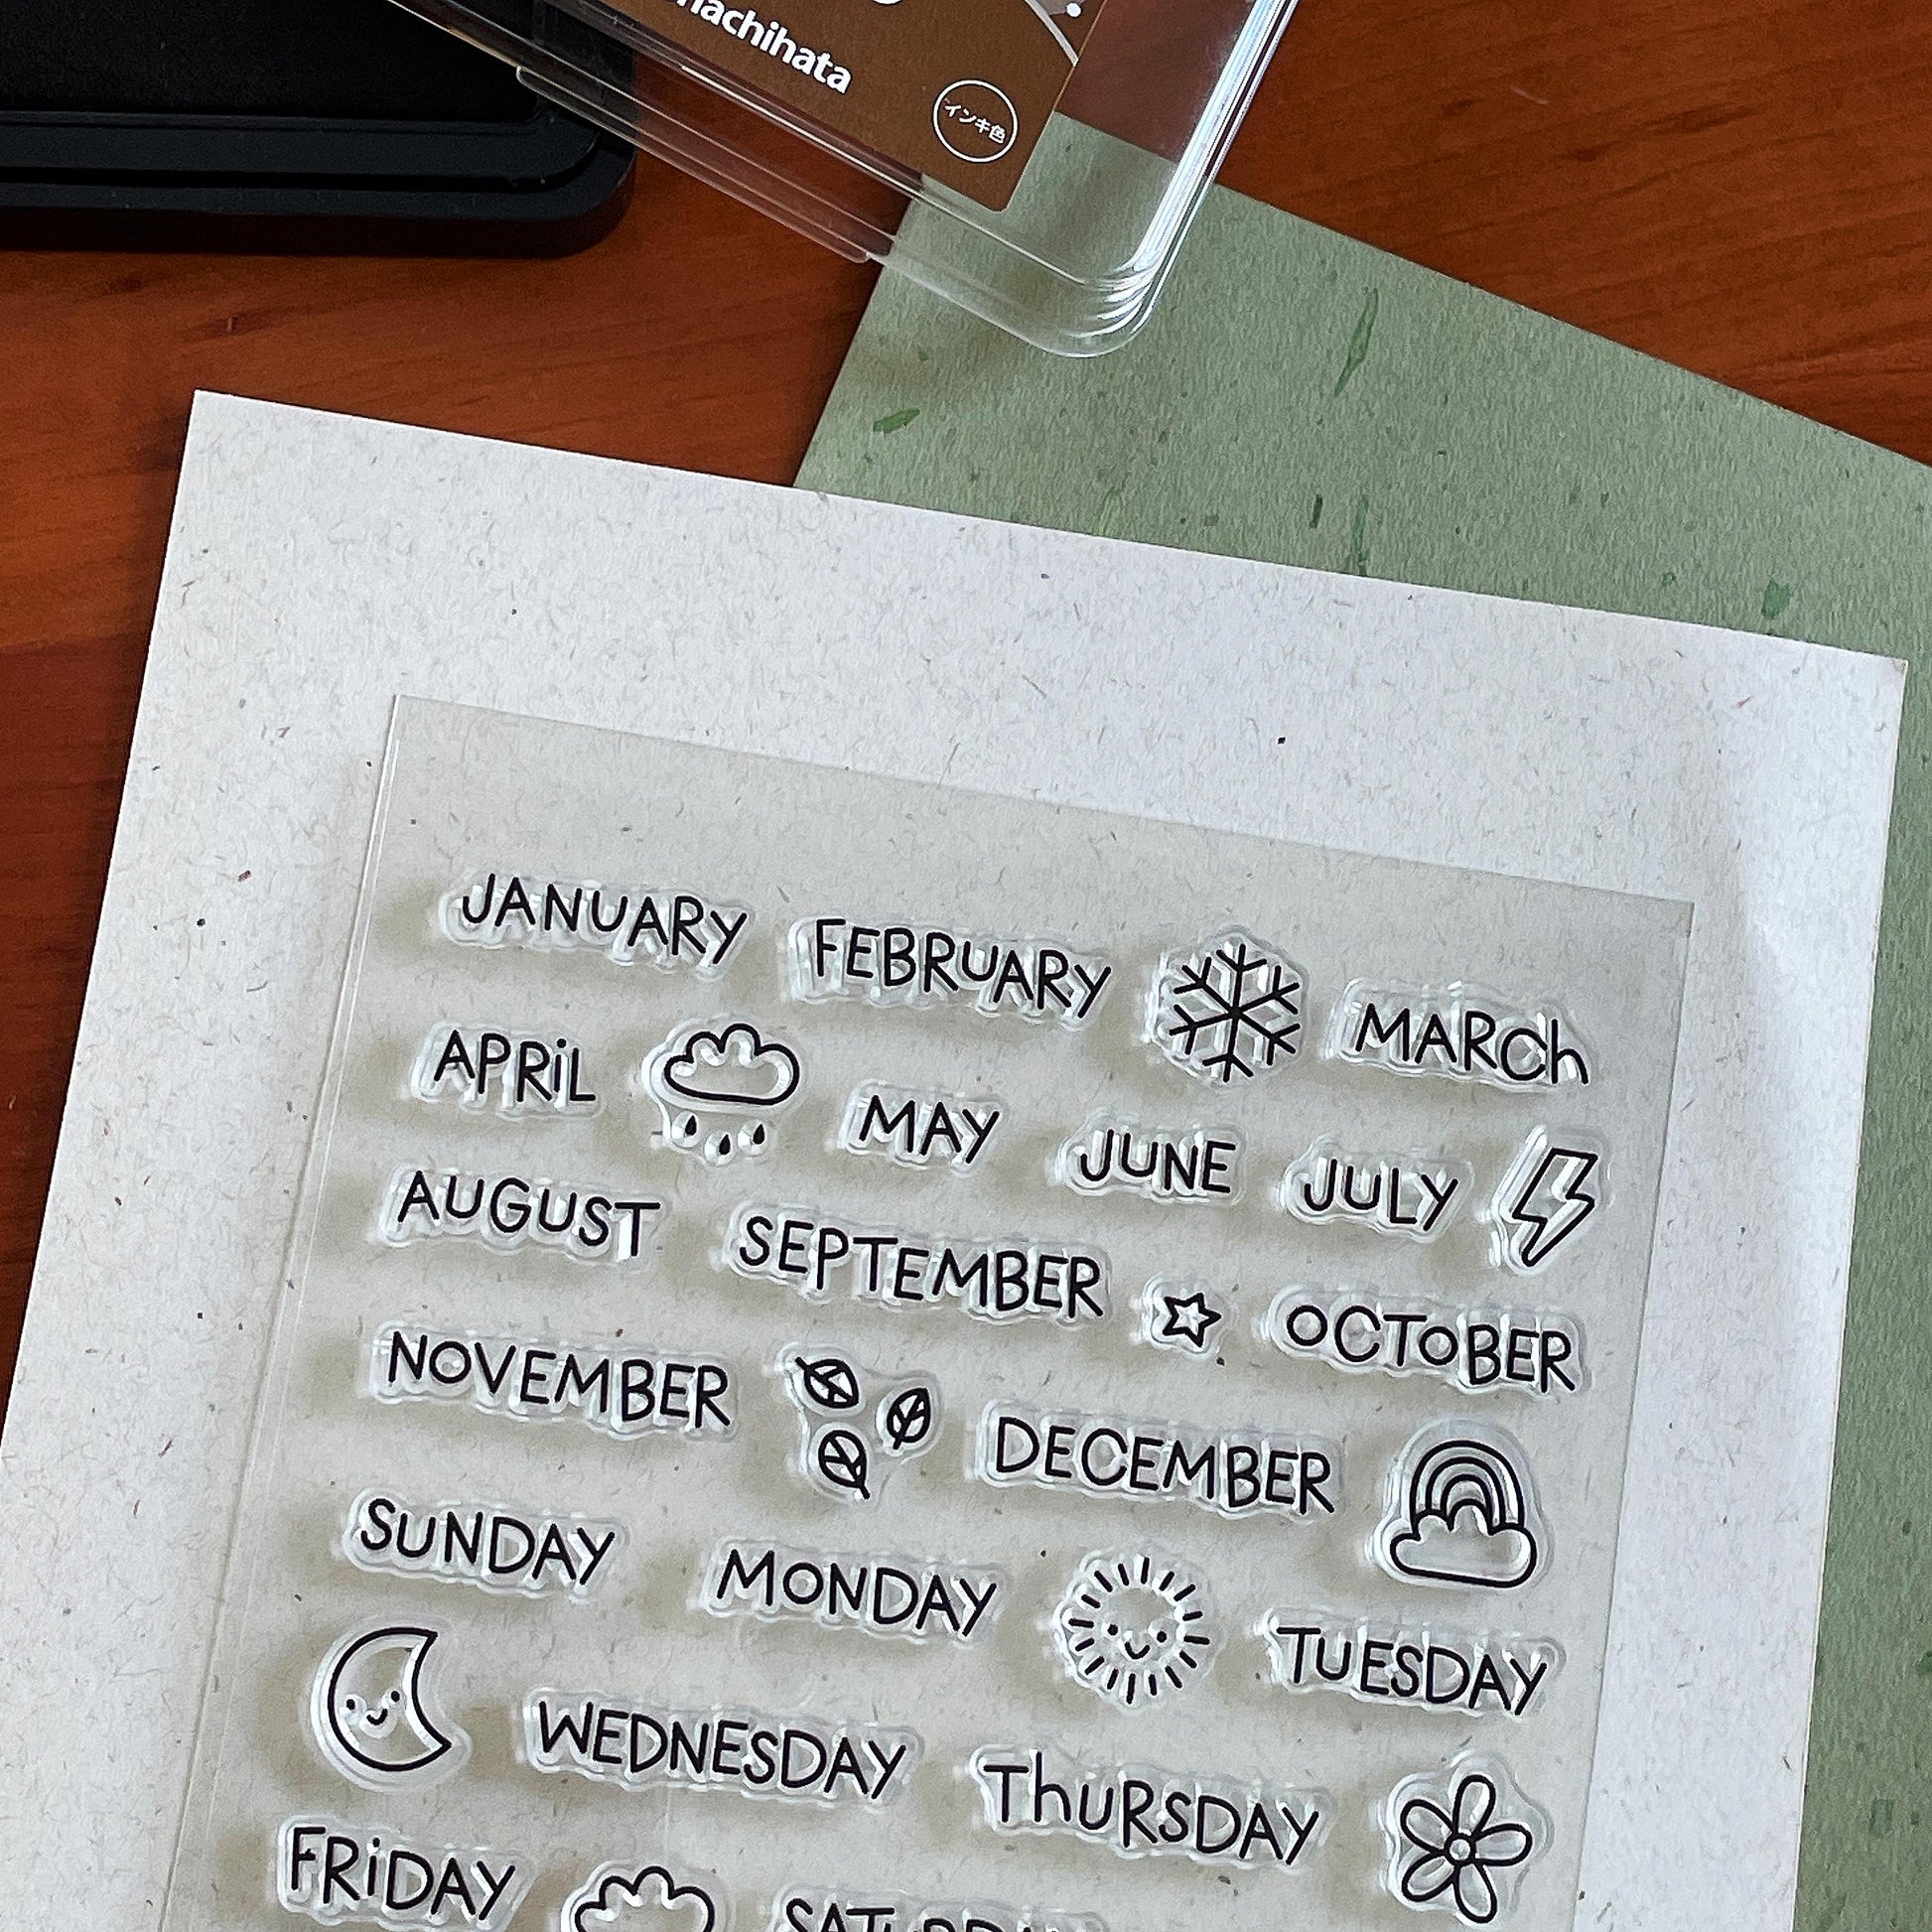 インキ色
JANUARY FEBRUARY MARCh
APRiL MAY JUNE JULY
AUGUST SEPTEMBER OCTOBER
NOVEMBER DECEMBER
SUNDAY MONDAY TUESDAY
WEDNESDAY ThURSDAY
FRiDAY SATURDAY